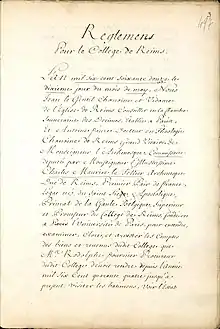 Reglemens
Pour le College de Reims.
L'an mil six cent soixante douze le
dixieme jour du mois de may, Nous
Jean le Gentil Chanoine et Vidame
de l'Eglise de Reims Conseiller en la
Souveraine des Decimes à Paris,
et Antoine Docteur en Theologie
Chanoine de Reims Grand Vicaire de
Monseigneur l'Archevesque
deputé par Monseigneur l'Illustrissime
Charles Maurice le Tellier Archevesque
Duc de Reims, Premier Pair de france
Legat né du Saint Siege Apostolique,
Primat de la Gaule Belgique, Superieur
et Proviseur du College de Reims fondé
à Paris l'Université de Paris, pour entendre,
examiner, Clorre, et arrester les Comptes
des biens et revenus dudit College que
Me Rodolphe fournier Procureur
dudit College devoit rendre depuis l'année
mil Six Cent quarante quatre jusqu'à
present, Visiter les batimens, Voir l'estat